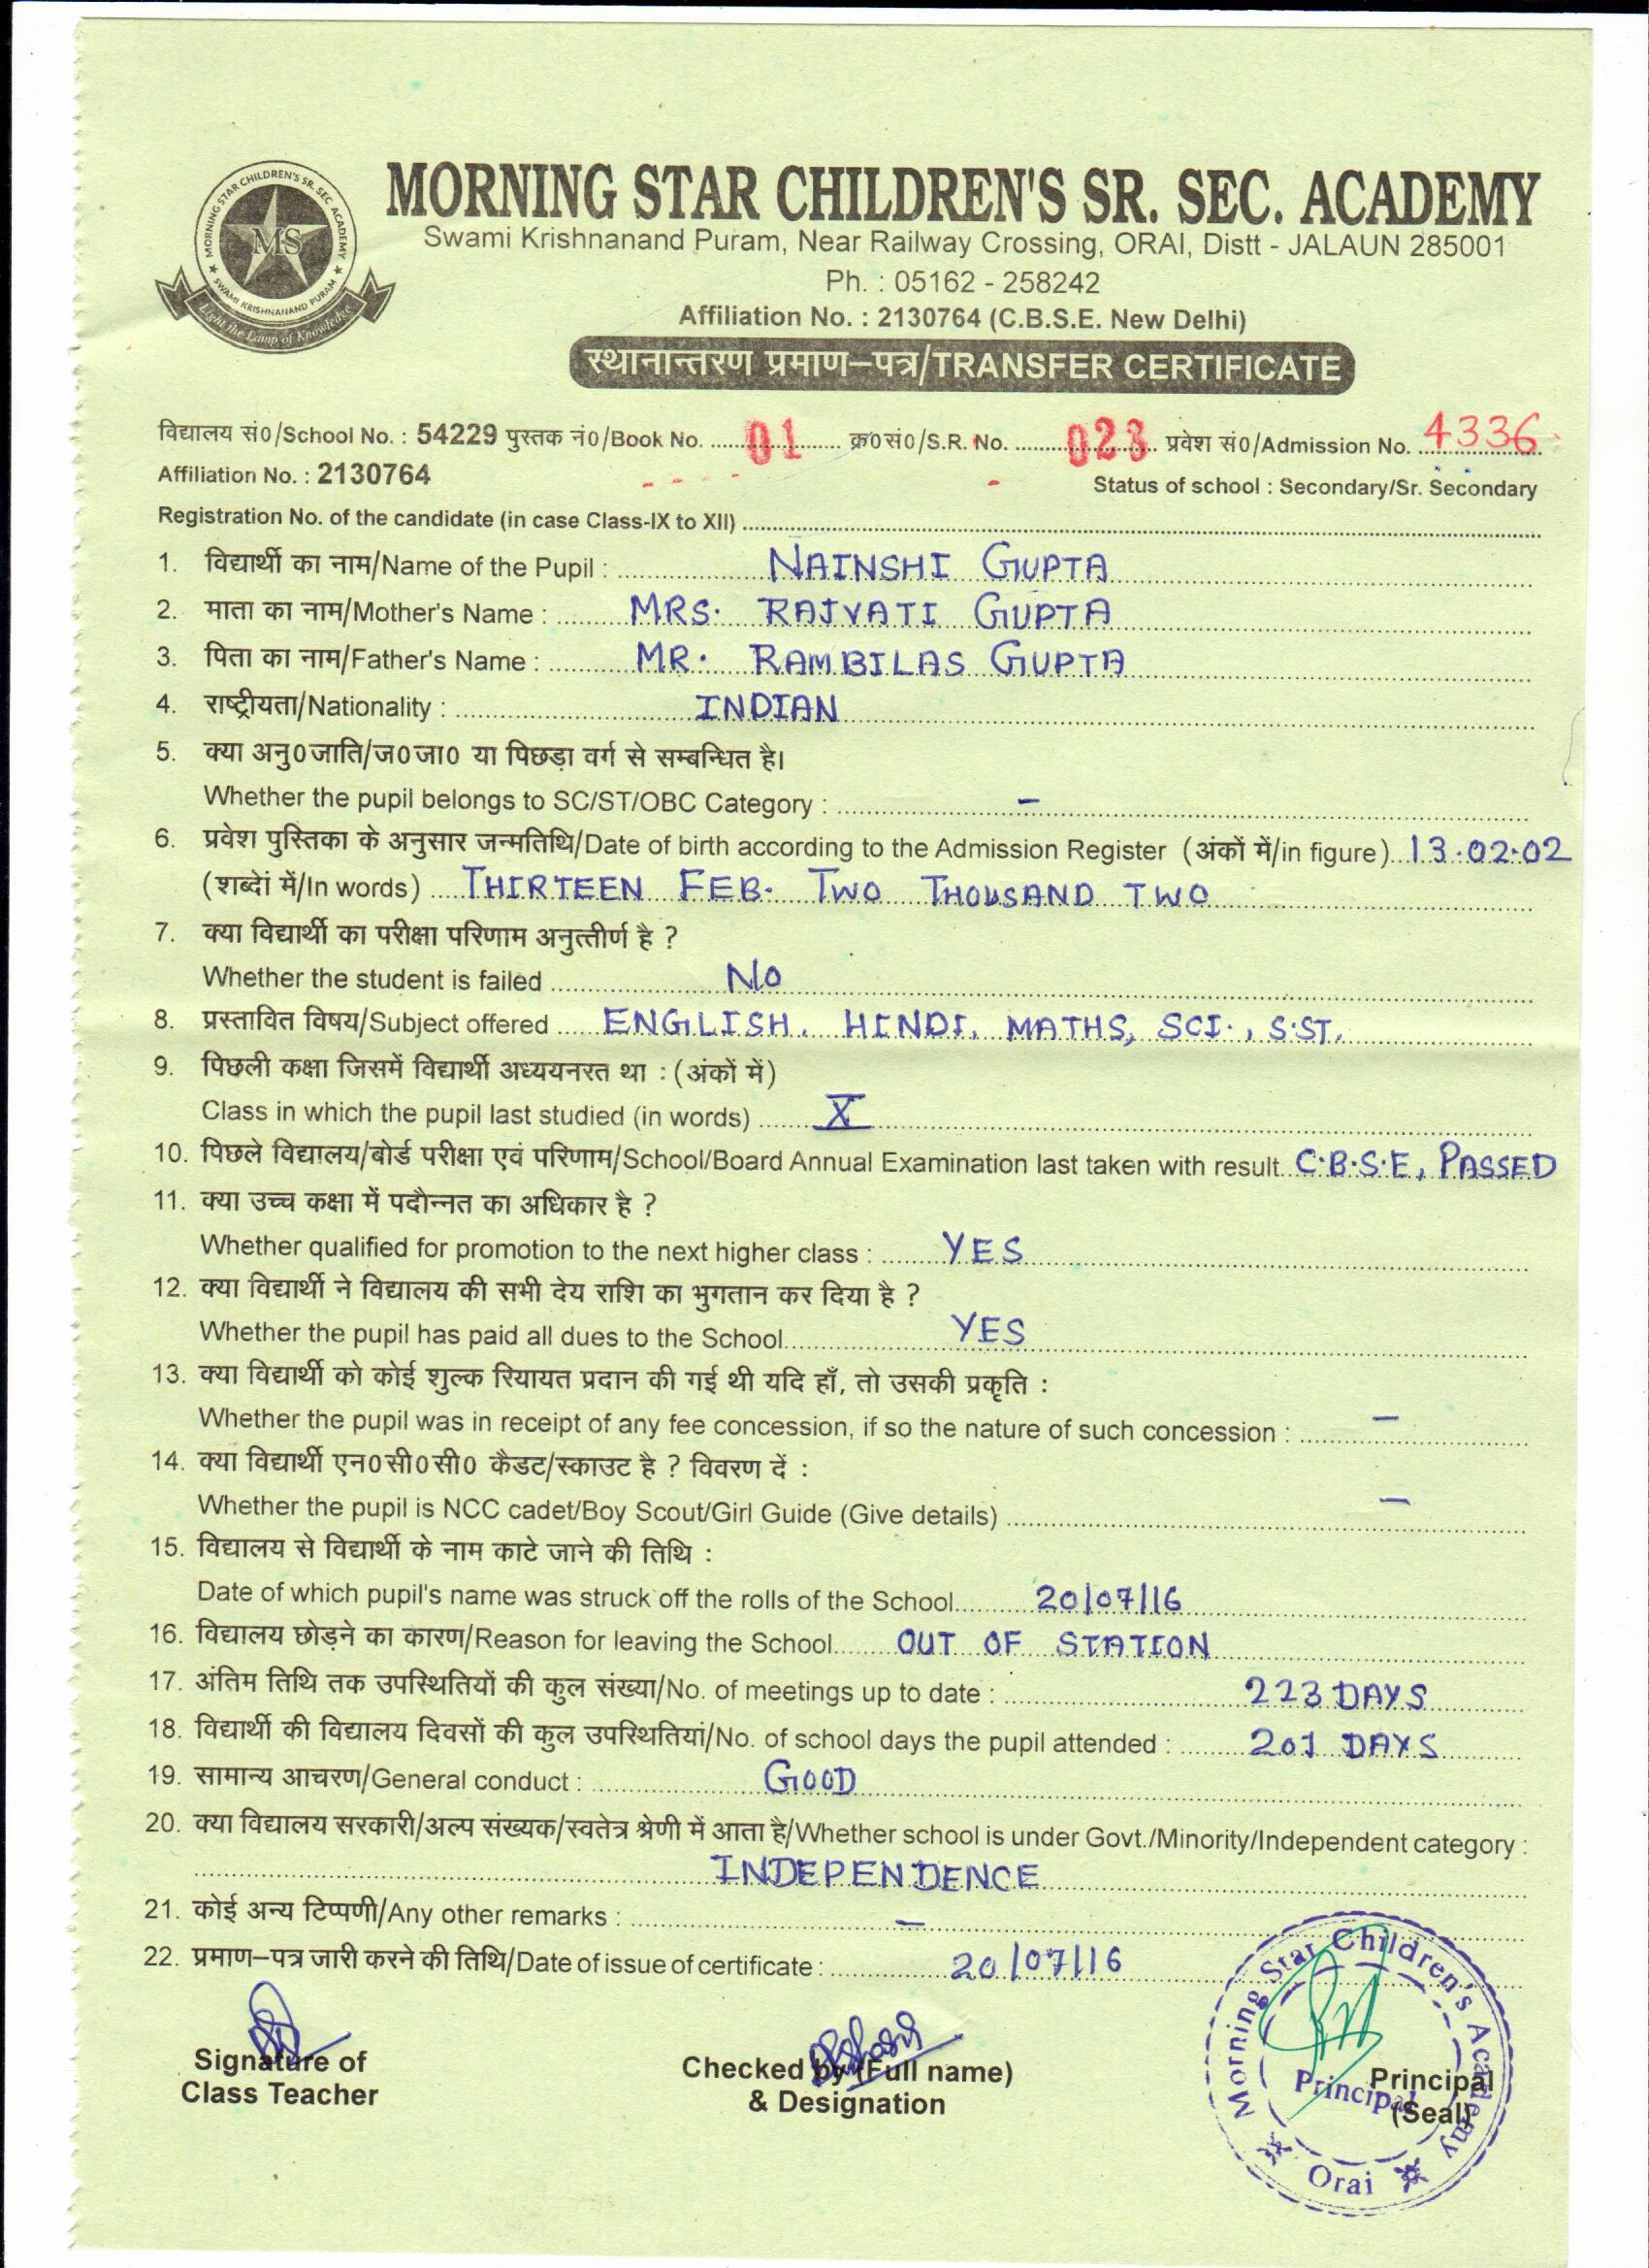 MORNING STAR CHILDREN'S SR. SEC. ACADEMY
MORNING STAR CHILDREN'S SR. SEC. ACADEMY
SWAMI KRISHNANAND PURAM
MS
Light the Lamp of Knowledge
Swami Krishnanand Puram, Near Railway Crossing, ORAI, Distt - JALAUN 285001
Ph. : 05162 - 258242
Affiliation No. : 2130764 (C.B.S.E. New Delhi)
स्थानान्तरण प्रमाण–पत्र/TRANSFER CERTIFICATE
विद्यालय सं0/School No. : 54229 पुस्तक नं0/Book No. 01 क्र0सं0/S.R. No. 023 प्रवेश सं0/Admission No. 4336
Affiliation No. : 2130764 Status of school : Secondary/Sr. Secondary
Registration No. of the candidate (in case Class-IX to XII)
1. विद्यार्थी का नाम/Name of the Pupil : NAINSHI GUPTA
2. माता का नाम/Mother's Name : MRS. RAJVATI GUPTA
3. पिता का नाम/Father's Name : MR. RAMBILAS GUPTA
4. राष्ट्रीयता/Nationality : INDIAN
5. क्या अनु0जाति/ज0जा0 या पिछड़ा वर्ग से सम्बन्धित है।
Whether the pupil belongs to SC/ST/OBC Category : –
6. प्रवेश पुस्तिका के अनुसार जन्मतिथि/Date of birth according to the Admission Register (अंकों में/in figure) 13.02.02
(शब्दों में/In words) THIRTEEN FEB. TWO THOUSAND TWO
7. क्या विद्यार्थी का परीक्षा परिणाम अनुत्तीर्ण है ?
Whether the student is failed NO
8. प्रस्तावित विषय/Subject offered ENGLISH, HINDI, MATHS, SCI., S.ST.
9. पिछली कक्षा जिसमें विद्यार्थी अध्ययनरत था : (अंकों में)
Class in which the pupil last studied (in words) X
10. पिछले विद्यालय/बोर्ड परीक्षा एवं परिणाम/School/Board Annual Examination last taken with result C.B.S.E, PASSED
11. क्या उच्च कक्षा में पदौन्नत का अधिकार है ?
Whether qualified for promotion to the next higher class : YES
12. क्या विद्यार्थी ने विद्यालय की सभी देय राशि का भुगतान कर दिया है ?
Whether the pupil has paid all dues to the School YES
13. क्या विद्यार्थी को कोई शुल्क रियायत प्रदान की गई थी यदि हाँ, तो उसकी प्रकृति :
Whether the pupil was in receipt of any fee concession, if so the nature of such concession : –
14. क्या विद्यार्थी एन0सी0सी0 कैडट/स्काउट है ? विवरण दें :
Whether the pupil is NCC cadet/Boy Scout/Girl Guide (Give details) –
15. विद्यालय से विद्यार्थी के नाम काटे जाने की तिथि :
Date of which pupil's name was struck off the rolls of the School 20/07/16
16. विद्यालय छोड़ने का कारण/Reason for leaving the School OUT OF STATION
17. अंतिम तिथि तक उपस्थितियों की कुल संख्या/No. of meetings up to date : 223 DAYS
18. विद्यार्थी की विद्यालय दिवसों की कुल उपस्थितियां/No. of school days the pupil attended : 201 DAYS
19. सामान्य आचरण/General conduct : GOOD
20. क्या विद्यालय सरकारी/अल्प संख्यक/स्वतेत्र श्रेणी में आता है/Whether school is under Govt./Minority/Independent category :
INDEPENDENCE
21. कोई अन्य टिप्पणी/Any other remarks : –
22. प्रमाण–पत्र जारी करने की तिथि/Date of issue of certificate : 20/07/16
Signature of
Class Teacher
Checked by (Full name)
& Designation
Principal
(Seal)
Morning Star Children's Academy
Principal
Orai